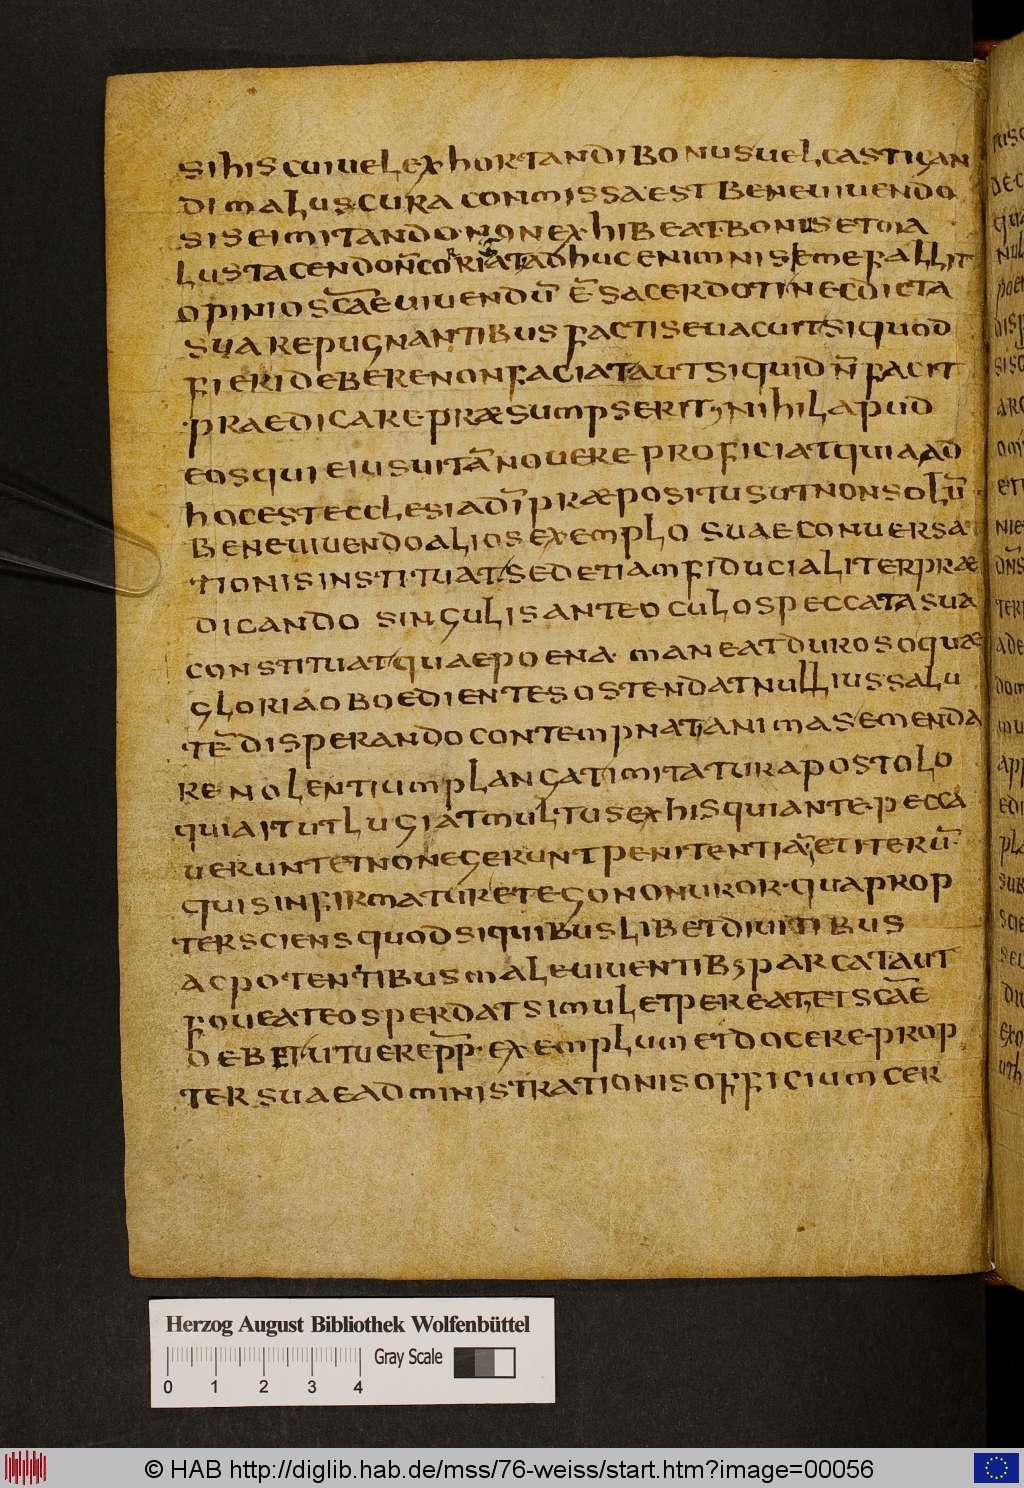 sihis cui uel exhortandi bonus uel castigan
di malus cura conmissa est bene uiuendo
sis eimitando non exhibeat bonus et ma
lus tacendo n̄ corriat ad huc enim nisi me fallit
opinio sc̄ae uiuendū ē sacerdoti nec dicta
sua repugnantibus factis euacuit si quod
fieri debere non faciat aut si quid n̄ facit
praedicare praesumpserit, nihil apud
eos qui eius uitā nouere proficiat quia ad
hoc est ecclesia dn̄i praepositus ut non solū
bene uiuendo alios exemplo suae conuersa
tionis instituat sed etiam fiducialiter prae
dicando singulis ante oculos peccata sua
constituat quae poena maneat duros o quae
gloria oboedientes ostendat nullius salu
tē disperando contempnat animas emenda
re nolentium plangat imitatur apostolo
quia it ut lugiat multus ex his qui ante pecca
uerunt et non egerunt penitentiā, et iterū
quis infirmatur et ego non uror quaprop
ter sciens quod si quibuslibet diuitibus
ac potentibus male uiuentib; parcat aut
foueat eos perdat simul et pereat, et sc̄ae
debet uiuere pp̄ exemplum et docere prop
ter suae administrationis officium cer
Herzog August Bibliothek Wolfenbüttel
Gray Scale
0 1 2 3 4
© HAB http://diglib.hab.de/mss/76-weiss/start.htm?image=00056